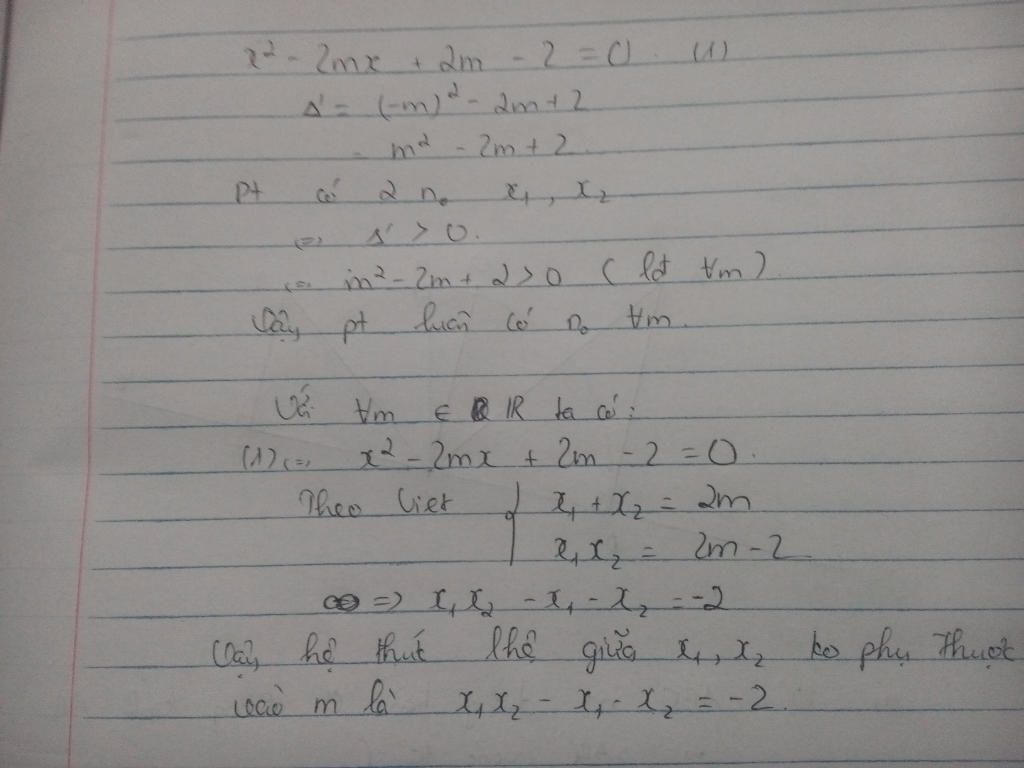 x² - 2mx + 2m - 2 = 0. (1)
Δ' = (-m)² - 2m + 2
= m² - 2m + 2.
Pt có 2 no x₁, x₂
<=> Δ' > 0.
<=> m² - 2m + 2 > 0 (lđ ∀m)
Vậy pt luôn có no ∀m.
Với ∀m ∈ R ta có:
(1) <=> x² - 2mx + 2m - 2 = 0.
Theo Viet { x₁ + x₂ = 2m
x₁x₂ = 2m - 2
=> x₁x₂ - x₁ - x₂ = -2
Vậy hệ thức lhệ giữa x₁, x₂ ko phụ thuộc
vào m là x₁x₂ - x₁ - x₂ = -2.